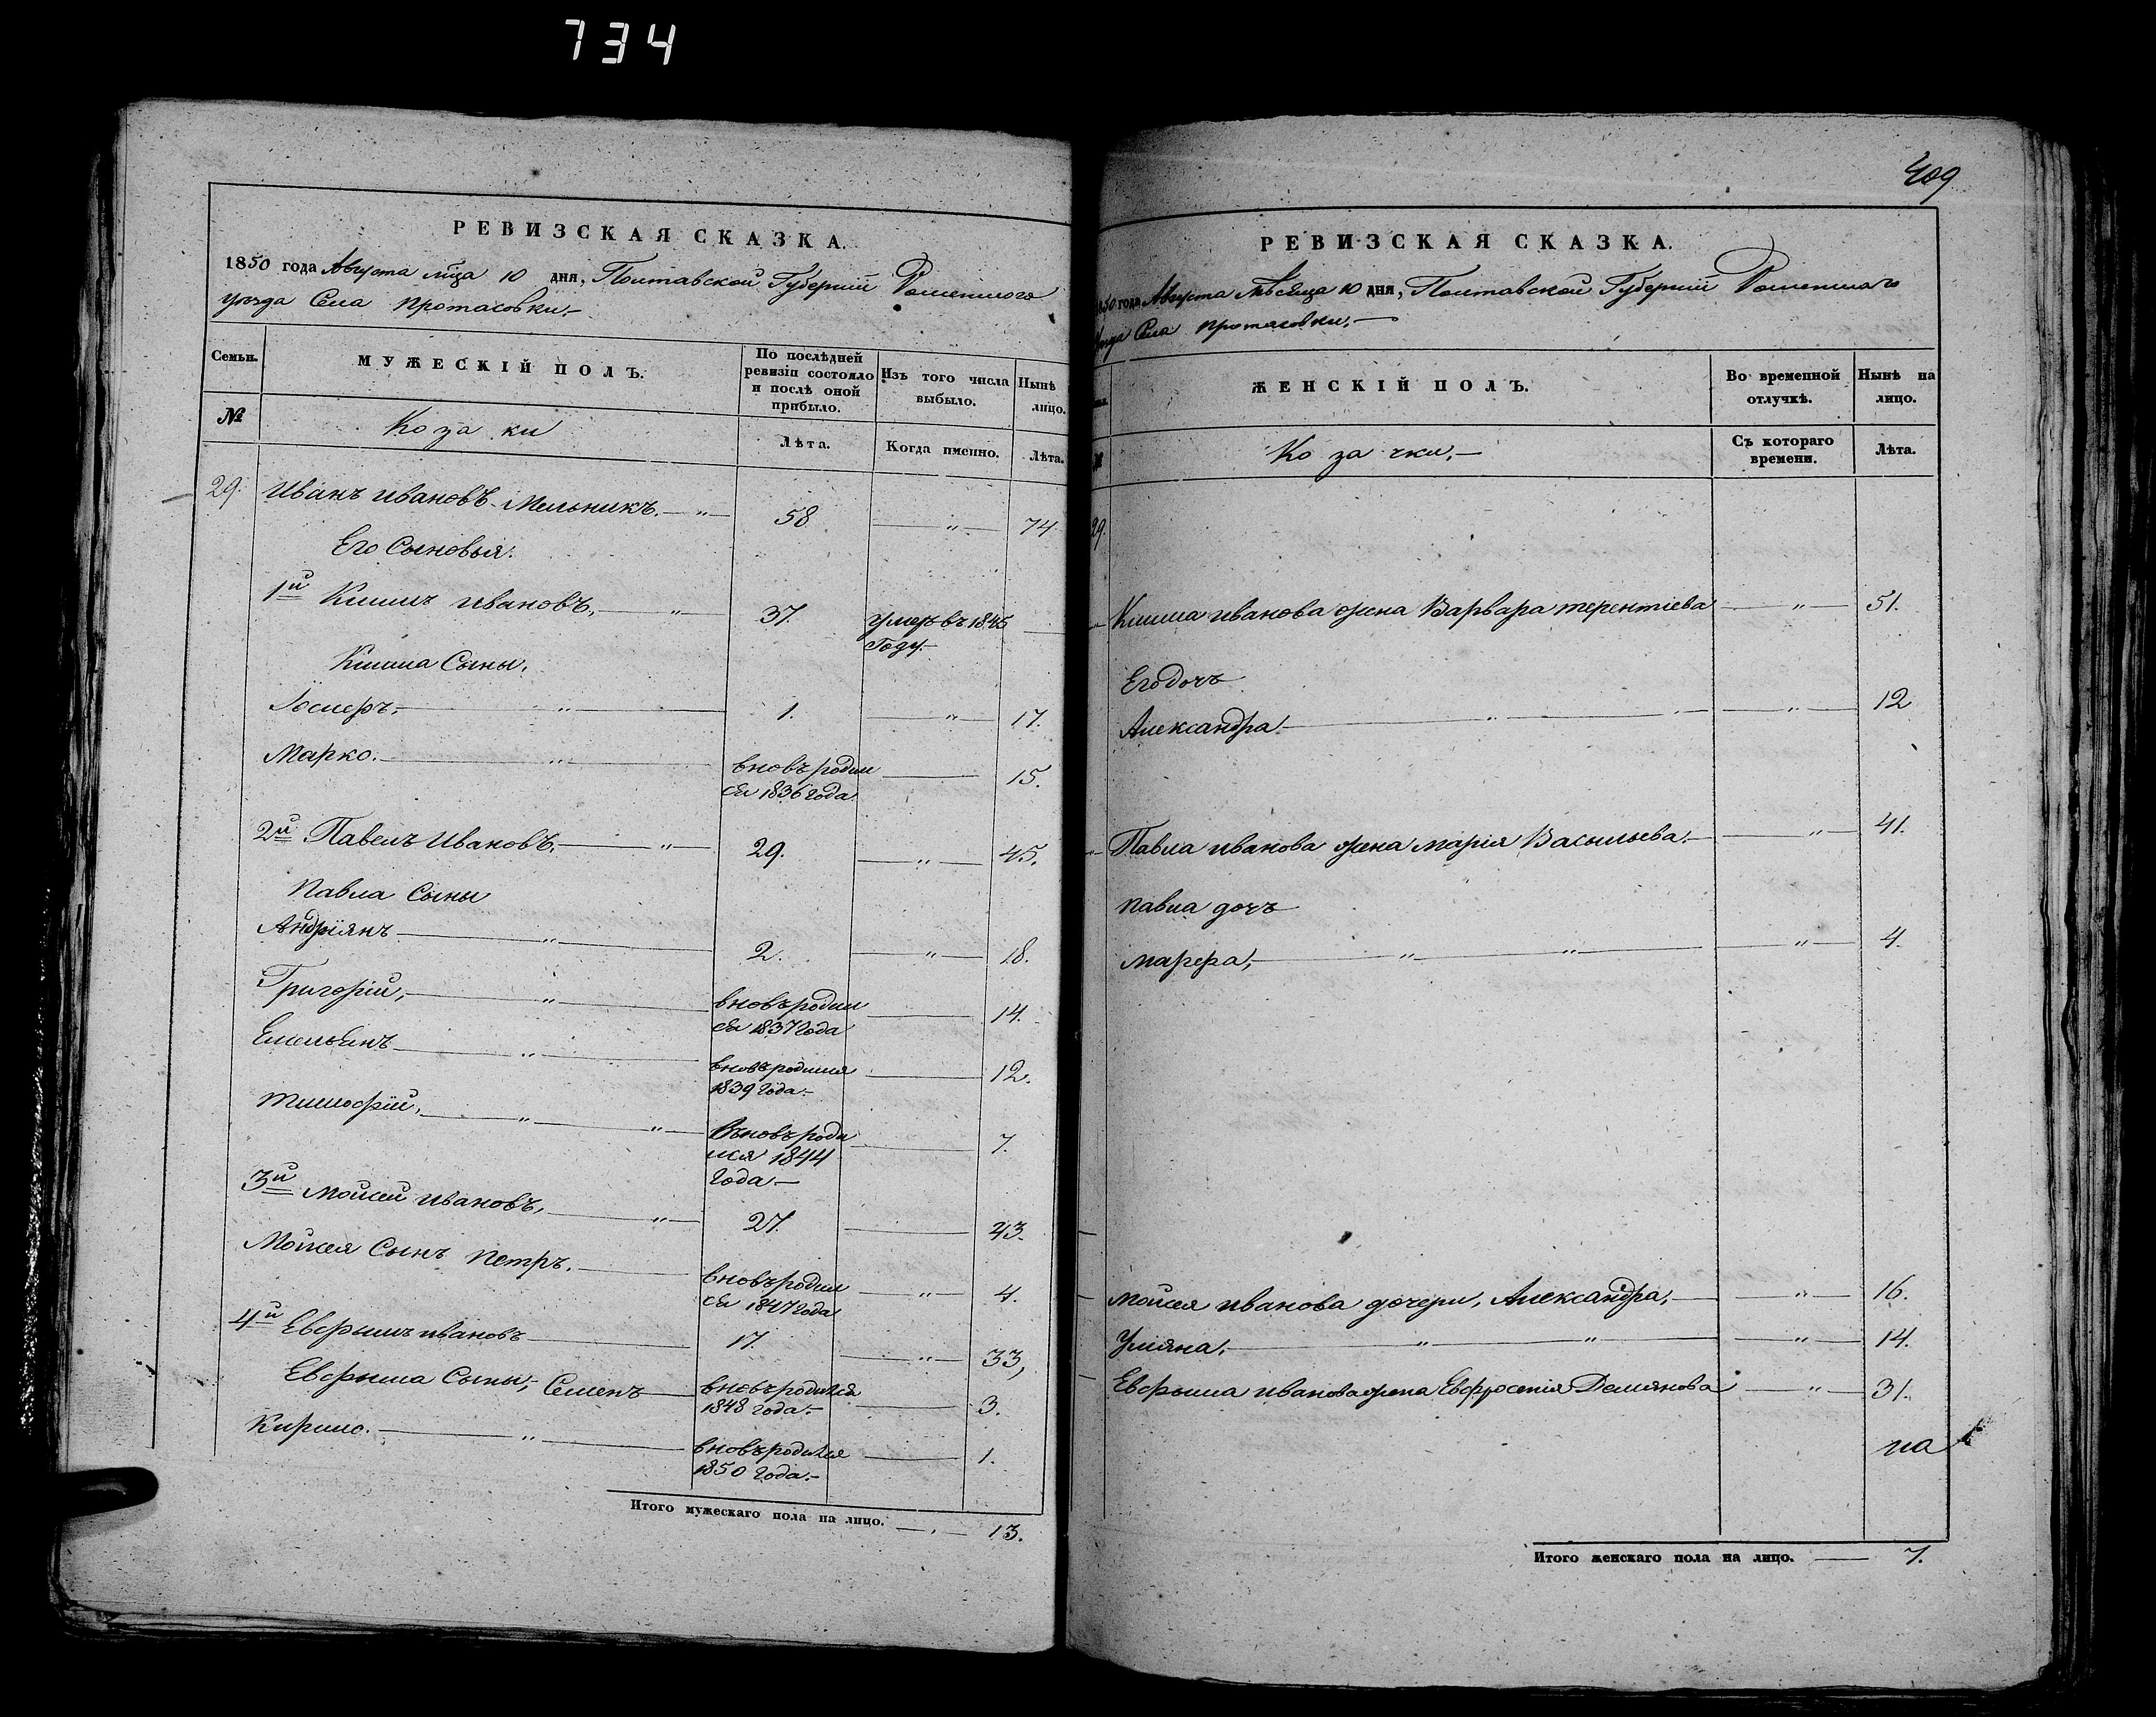 734
РЕВИЗСКАЯ СКАЗКА.
1850 года Августа мца 10 дня, Полтавской Губерніи Роменнаго
уезда Села Протасовки.
Семьи.
МУЖЕСКІЙ ПОЛЪ.
По послѣдней ревизіи состояло и послѣ оной прибыло.
Изъ того числа выбыло.
Нынѣ лицо.
№
Козаки
Лѣта.
Когда именно.
Лѣта.
29. Иванъ Ивановъ Мельникъ. — " — 58 — " — 74
Его Сыновья:
1й Климъ Ивановъ, — " — 37. умеръ въ 1845 —
Году.
Клима Сыны,
1. — " — 17.
Марко. — " — вновь родил — 15.
ся 1836 года
2й Павелъ Ивановъ. — " — 29. — " — 45.
Павла Сыны
Андріянъ — " — 2. — " — 18.
Григорій, — " — вновь родил — 14.
ся 1837 года
Емельянъ — " — вновь родился — 12.
1839 года.
Тимофій, — " — " — Вновь роди — 7.
лся 1844
года —
3й Мойсей Ивановъ, — " — 27. — 43.
Мойсея Сынъ Петръ. — вновь родил — " — 4.
ся 1847 года
4й Евфимъ Ивановъ — 17. — " — 33,
Евфыма Сыны, Семенъ — вновь родился — 3.
1848 года.
Кирило. — " — вновь родился — 1.
1850 года.
Итого мужескаго пола на лицо. — 13.
409
РЕВИЗСКАЯ СКАЗКА.
1850 года Августа Мѣсяца 10 дня, Полтавской Губерніи Роменнаго
уезда Села Протасовки. —
ЖЕНСКІЙ ПОЛЪ.
Во временной отлучкѣ.
Нынѣ на лицо.
№
Козачки. —
Съ котораго времени.
Лѣта.
29.
Клима Иванова жена Варвара Терентіева — " — 51.
Его дочь
Александра. — " — " — 12
Павла Иванова жена Марія Васильева. — " — 41.
Павла дочь
— " — " — " — 4.
Мойсея Иванова дочери, Александра, — " — 16.
Уліяна. — " — " — " — 14.
Евфыма Иванова жена Евфросенія Демянова — " — 31.
на
Итого женскаго пола на лицо. — 7.